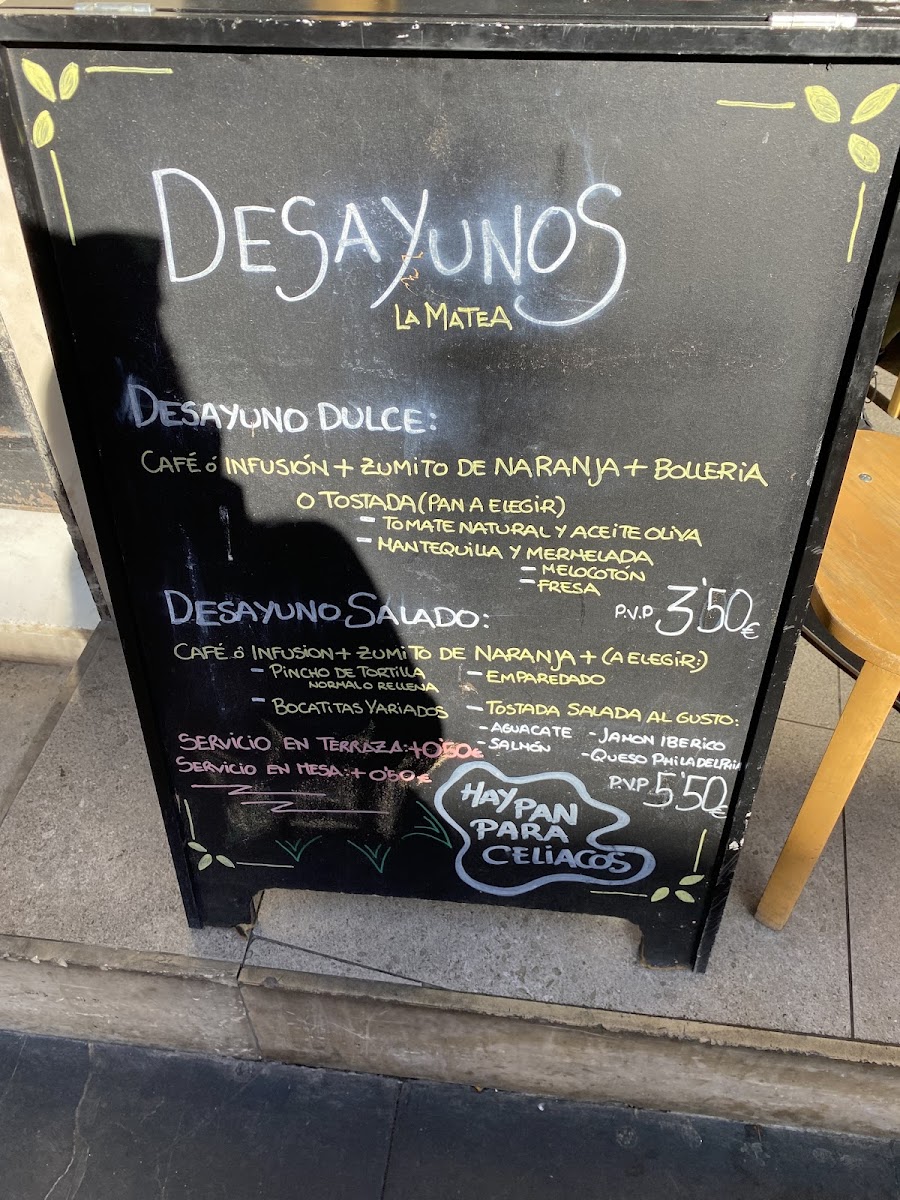 DESAYUNOS
LA MATEA
DESAYUNO DULCE:
CAFÉ ó INFUSIÓN + ZUMITO DE NARANJA + BOLLERIA
O TOSTADA (PAN A ELEGIR)
- TOMATE NATURAL Y ACEITE OLIVA
- MANTEQUILLA Y MERMELADA
- MELOCOTÓN
- FRESA
P.V.P 3'50€
DESAYUNO SALADO:
CAFÉ ó INFUSION + ZUMITO DE NARANJA + (A ELEGIR:)
- PINCHO DE TORTILLA
NORMAL O RELLENA
- BOCATITAS VARIADOS
- EMPAREDADO
- TOSTADA SALADA AL GUSTO:
- AGUACATE - JAMON IBERICO
- SALMÓN - QUESO PHILADELPHIA
P.V.P 5'50€
SERVICIO EN TERRAZA: +0'50€
SERVICIO EN MESA: + 0'50€
HAY PAN
PARA
CELIACOS